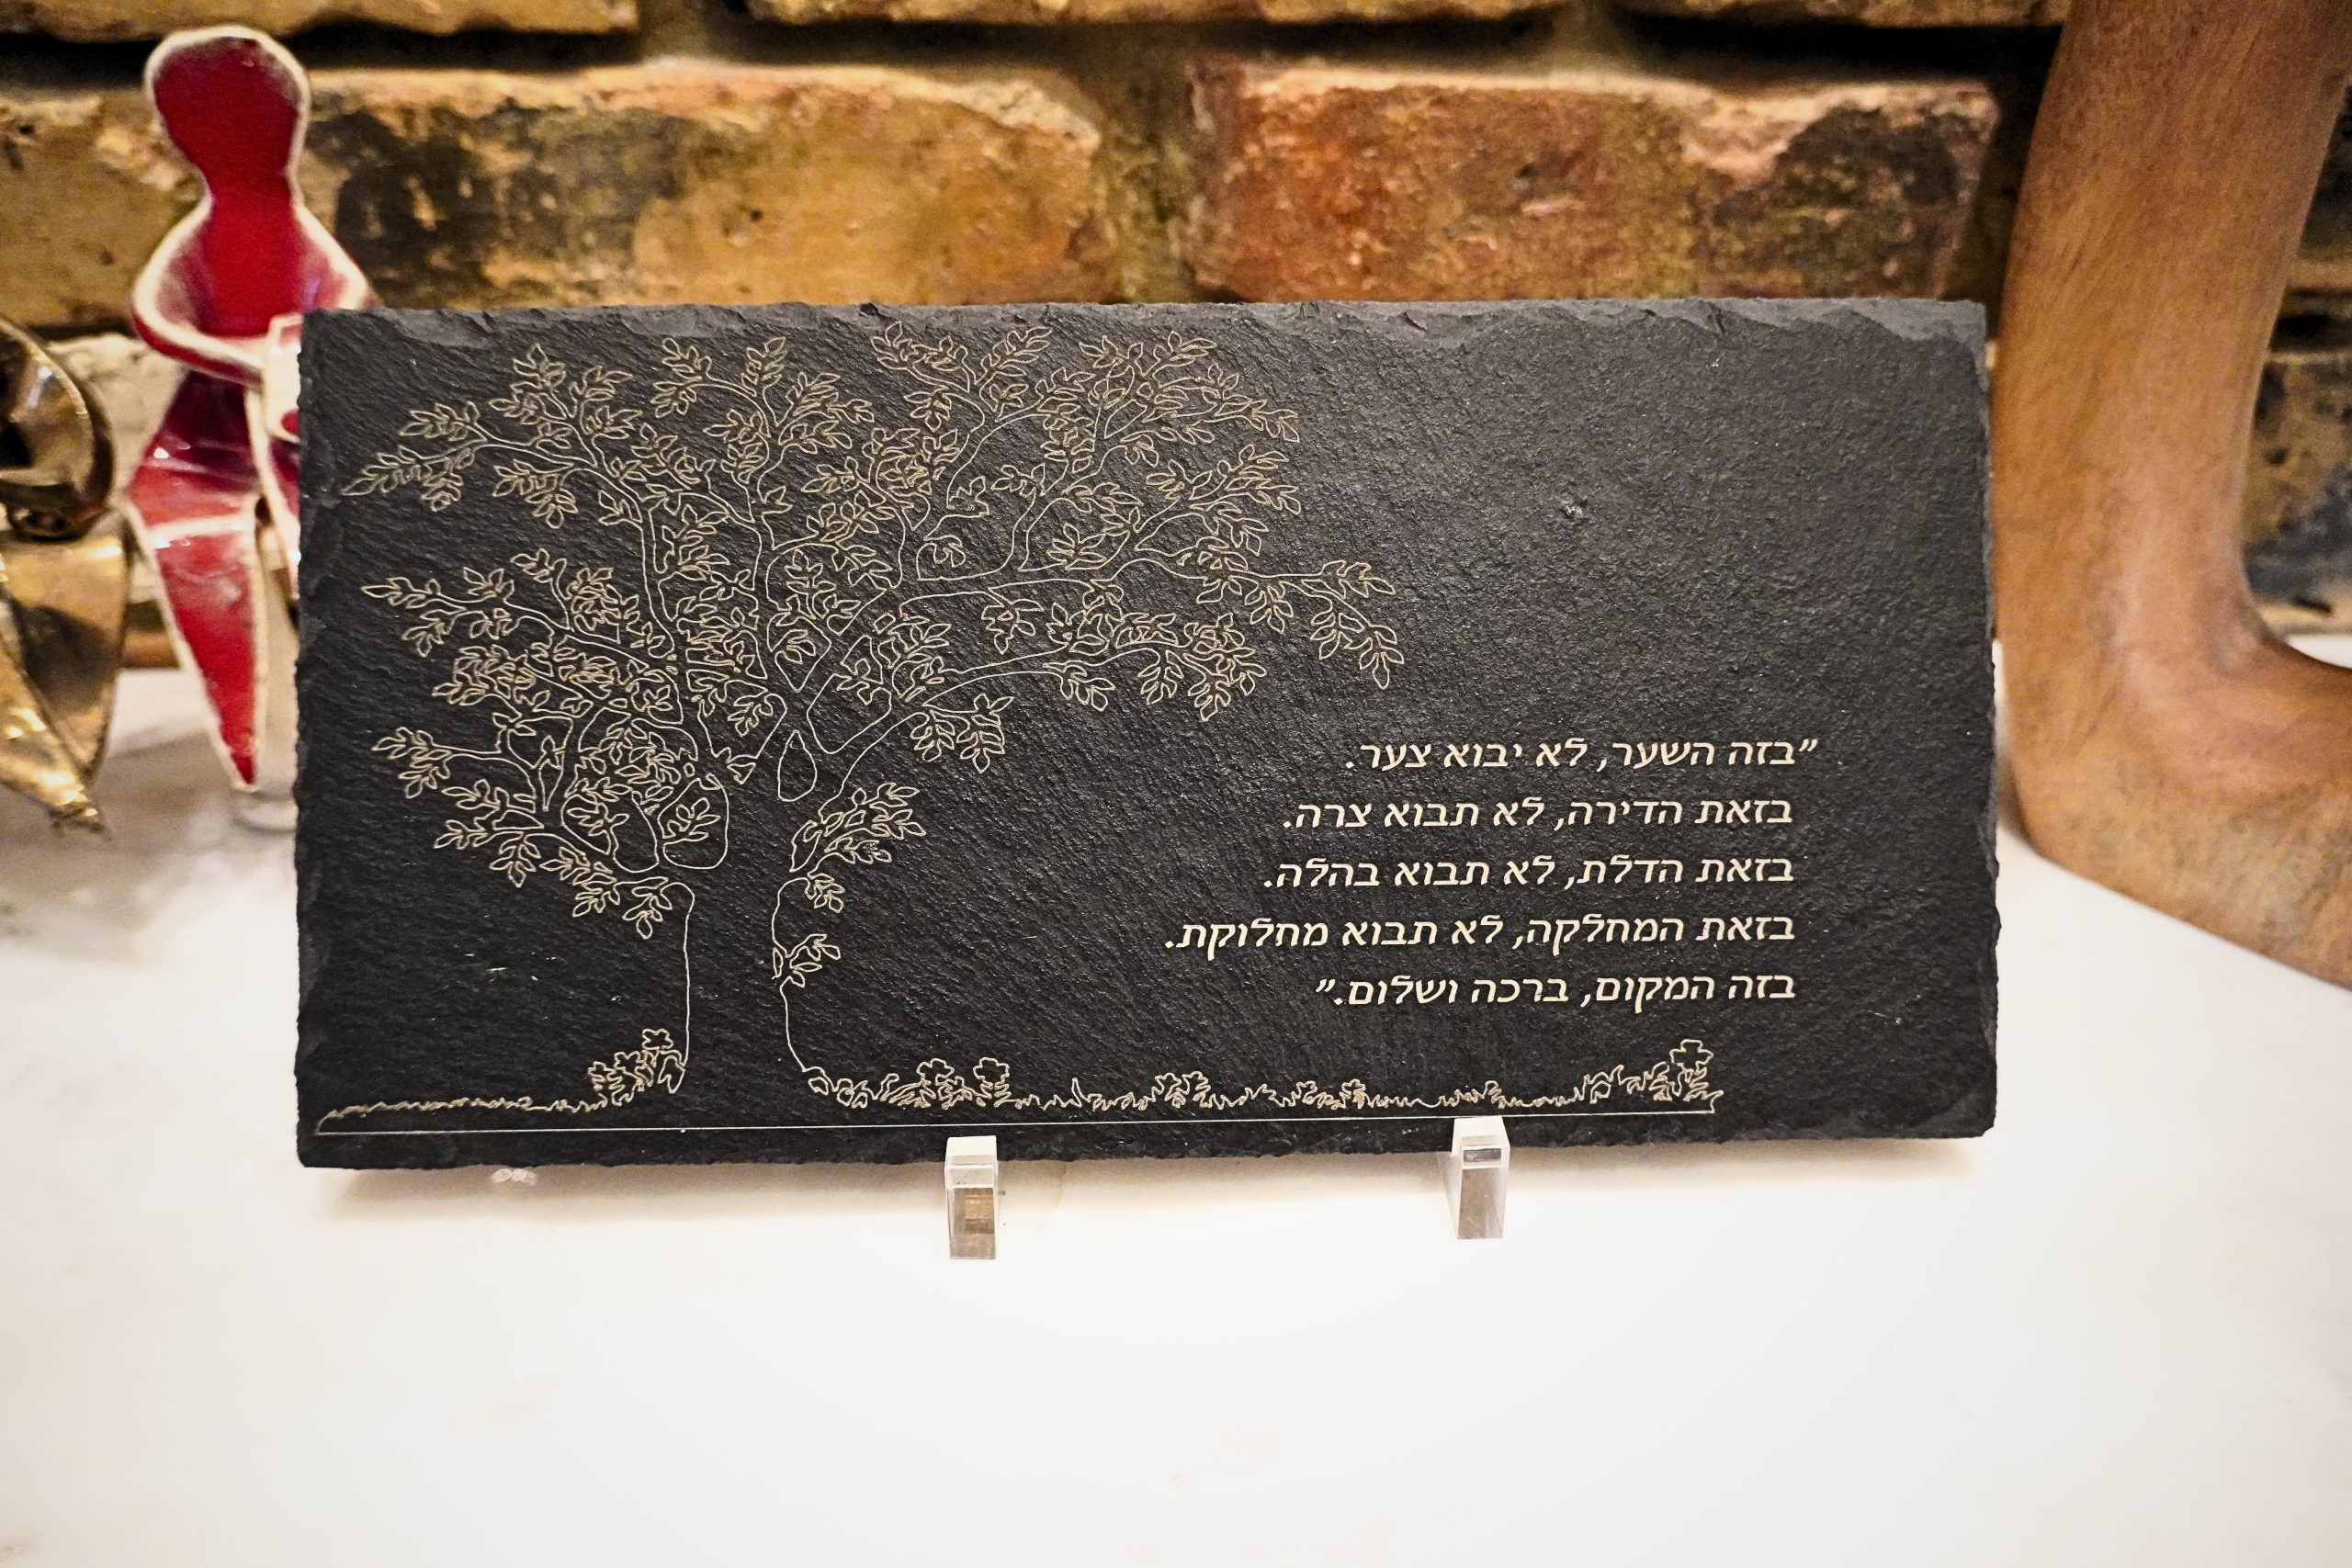 "בזה השער, לא יבוא צער.
בזאת הדירה, לא תבוא צרה.
בזאת הדלת, לא תבוא בהלה.
בזאת המחלקה, לא תבוא מחלוקת.
בזה המקום, ברכה ושלום."